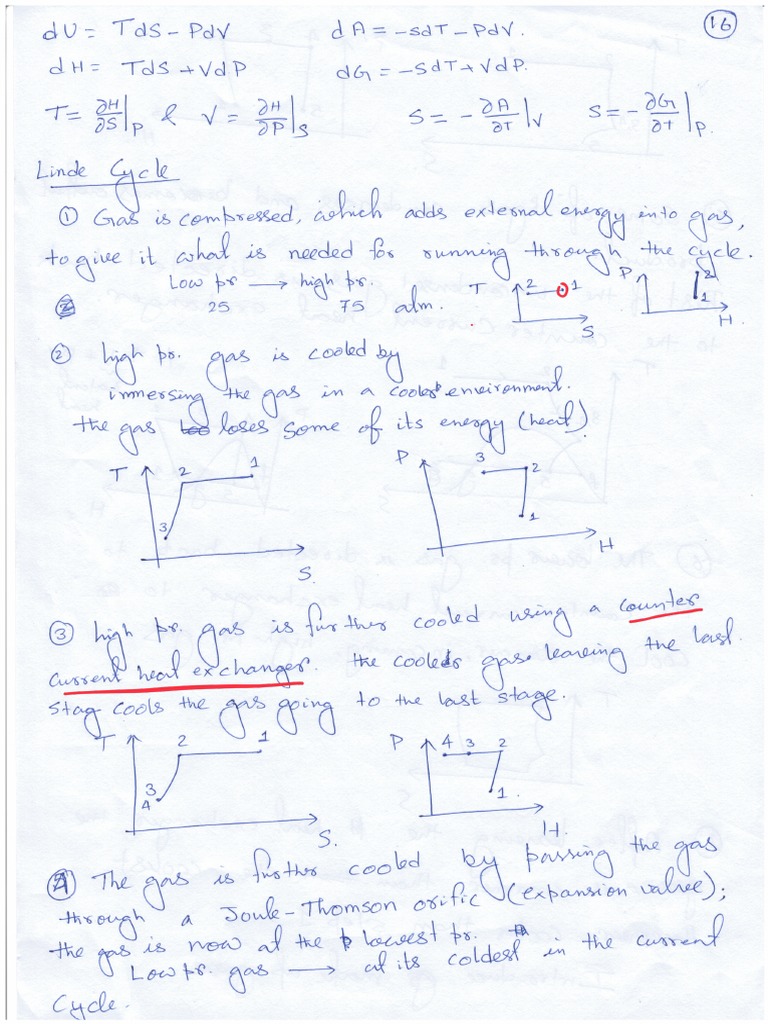 16
dU = TdS - PdV    dA = -SdT - PdV.
dH = TdS + VdP    dG = -SdT + VdP.
T = ∂H/∂S|P & V = ∂H/∂P|S    S = -∂A/∂T|V    S = -∂G/∂T|P.
Linde Cycle
① Gas is compressed, which adds external energy into gas,
to give it what is needed for running through the cycle.
Low pr → high pr.
25    75 atm.
T 2 1 S
P 2 1 H.
② high pr. gas is cooled by
immersing the gas in a cooler environment.
the gas loses some of its energy (heat).
T 2 1 3 S.
P 3 2 1 H
③ high pr. gas is further cooled using a counter
current heat exchanger. the cooler gas leaving the last
stag cools the gas going to the last stage.
T 2 1 3 4 S.
P 4 3 2 1. H.
④ The gas is further cooled by passing the gas
through a Joule-Thomson orific (expansion valve);
the gas is now at the lowest pr.
Low pr. gas → at its coldest in the current
cycle.